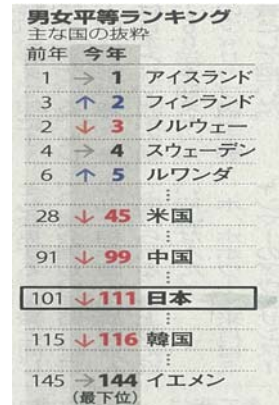 男女平等ランキング
主な国の抜粋
前年 今年
1 → 1 アイスランド
3 ↑ 2 フィンランド
2 ↓ 3 ノルウェー
4 → 4 スウェーデン
6 ↑ 5 ルワンダ
⋮
28 ↓ 45 米国
⋮
91 ↓ 99 中国
⋮
101 ↓ 111 日本
⋮
115 ↓ 116 韓国
⋮
145 → 144 イエメン
(最下位)